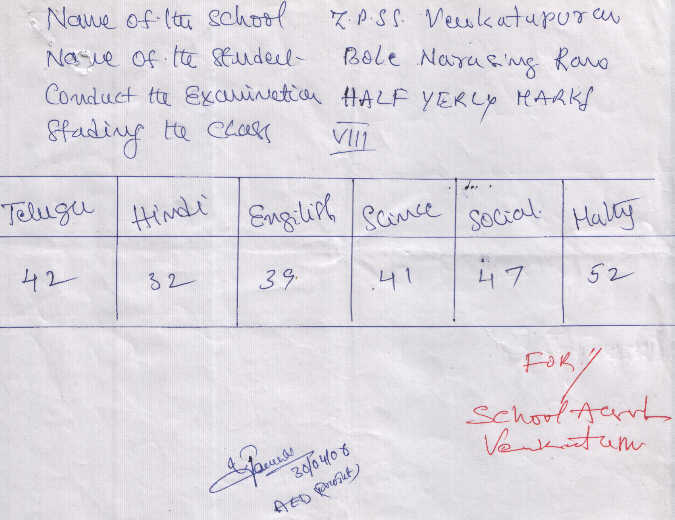 Name of the school Z.P.SS. Venkatapuram
Name of the Student Bole Narasing Rao
Conduct the Examination HALF YERLY MARKS
Stading the Class VIII
Telugu Hindi Engilish Science Social Maths
42 32 39 41 47 52
FOR
School
30/04/06
AEO